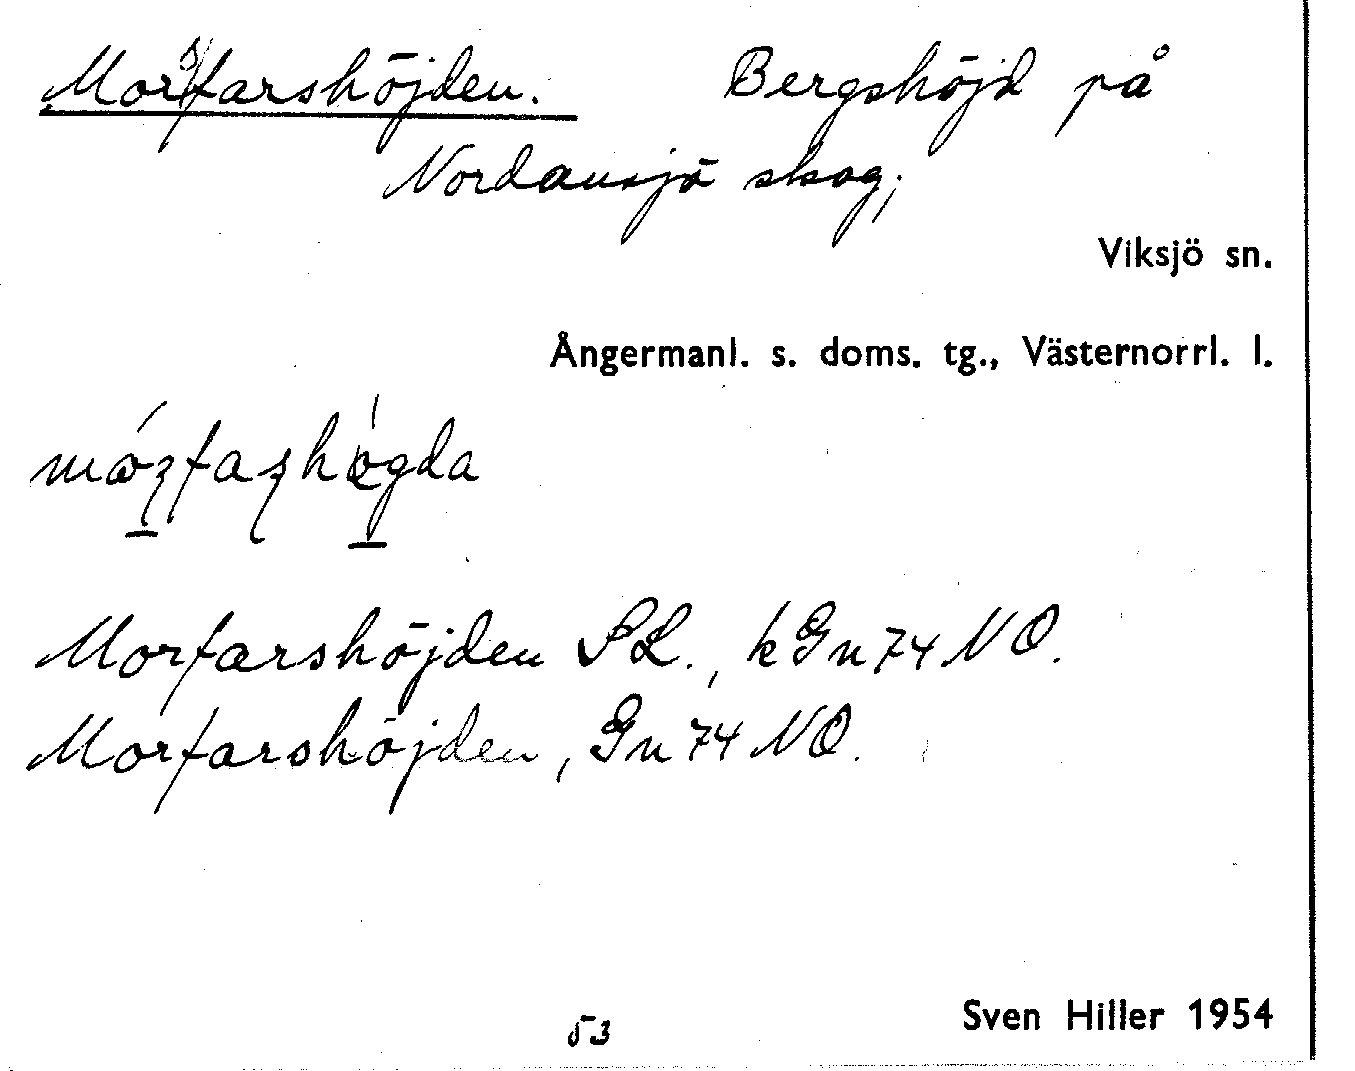 Morfarshöjden. Bergshöjd på
Nordansjö skog;
Viksjö sn.
Ångermanl. s. doms. tg., Västernorrl. l.
Morfarshöjden SL., kGn74NO.
Morfarshöjden, Gn74NO.
53
Sven Hiller 1954